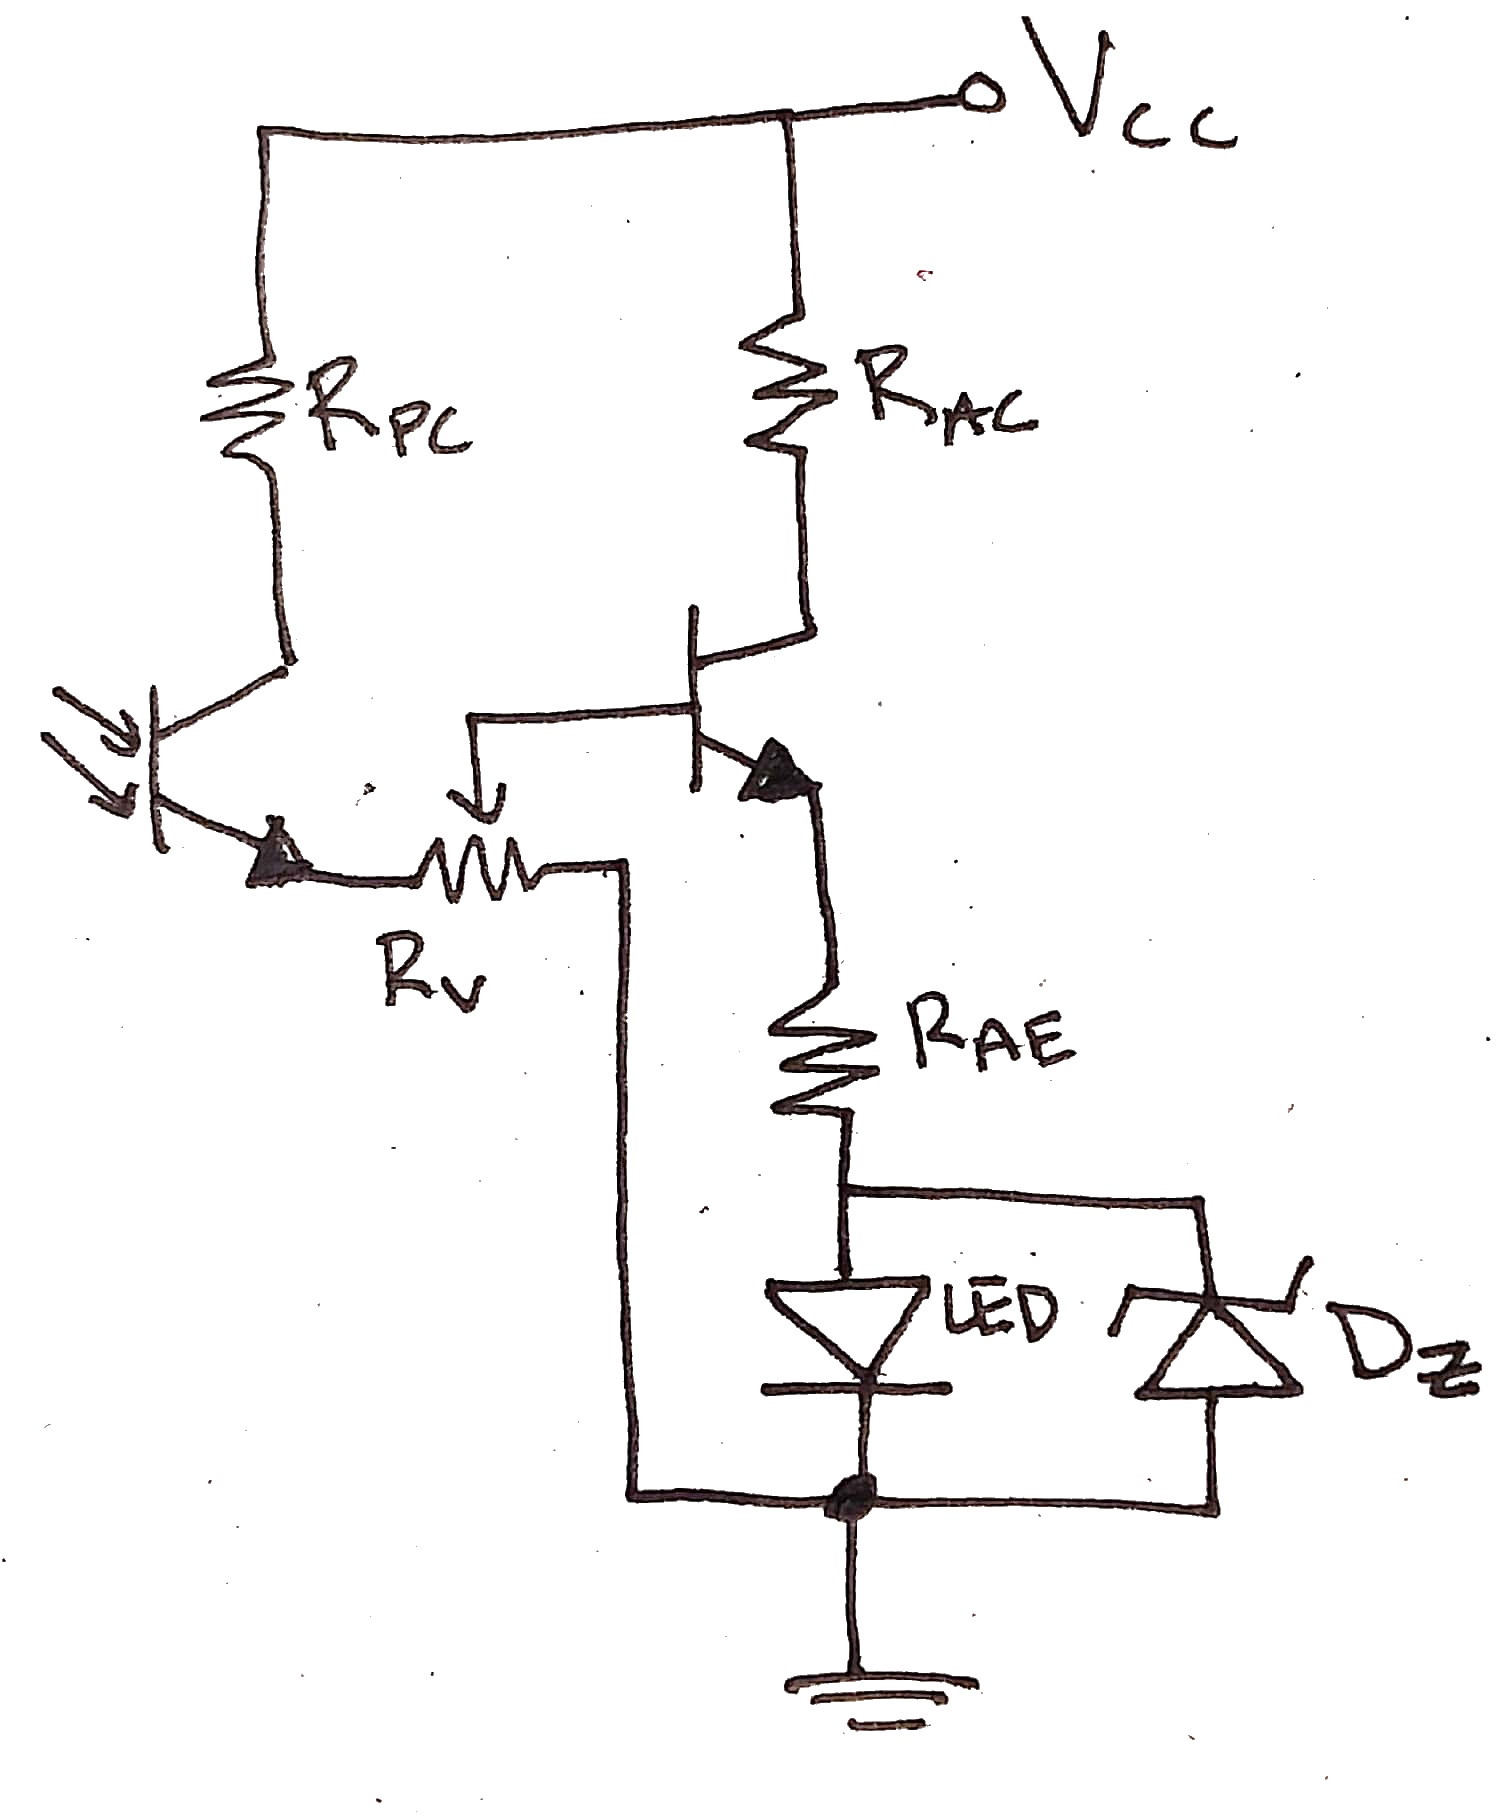 VCC
RPC
RAC
RV
RAE
LED
DZ